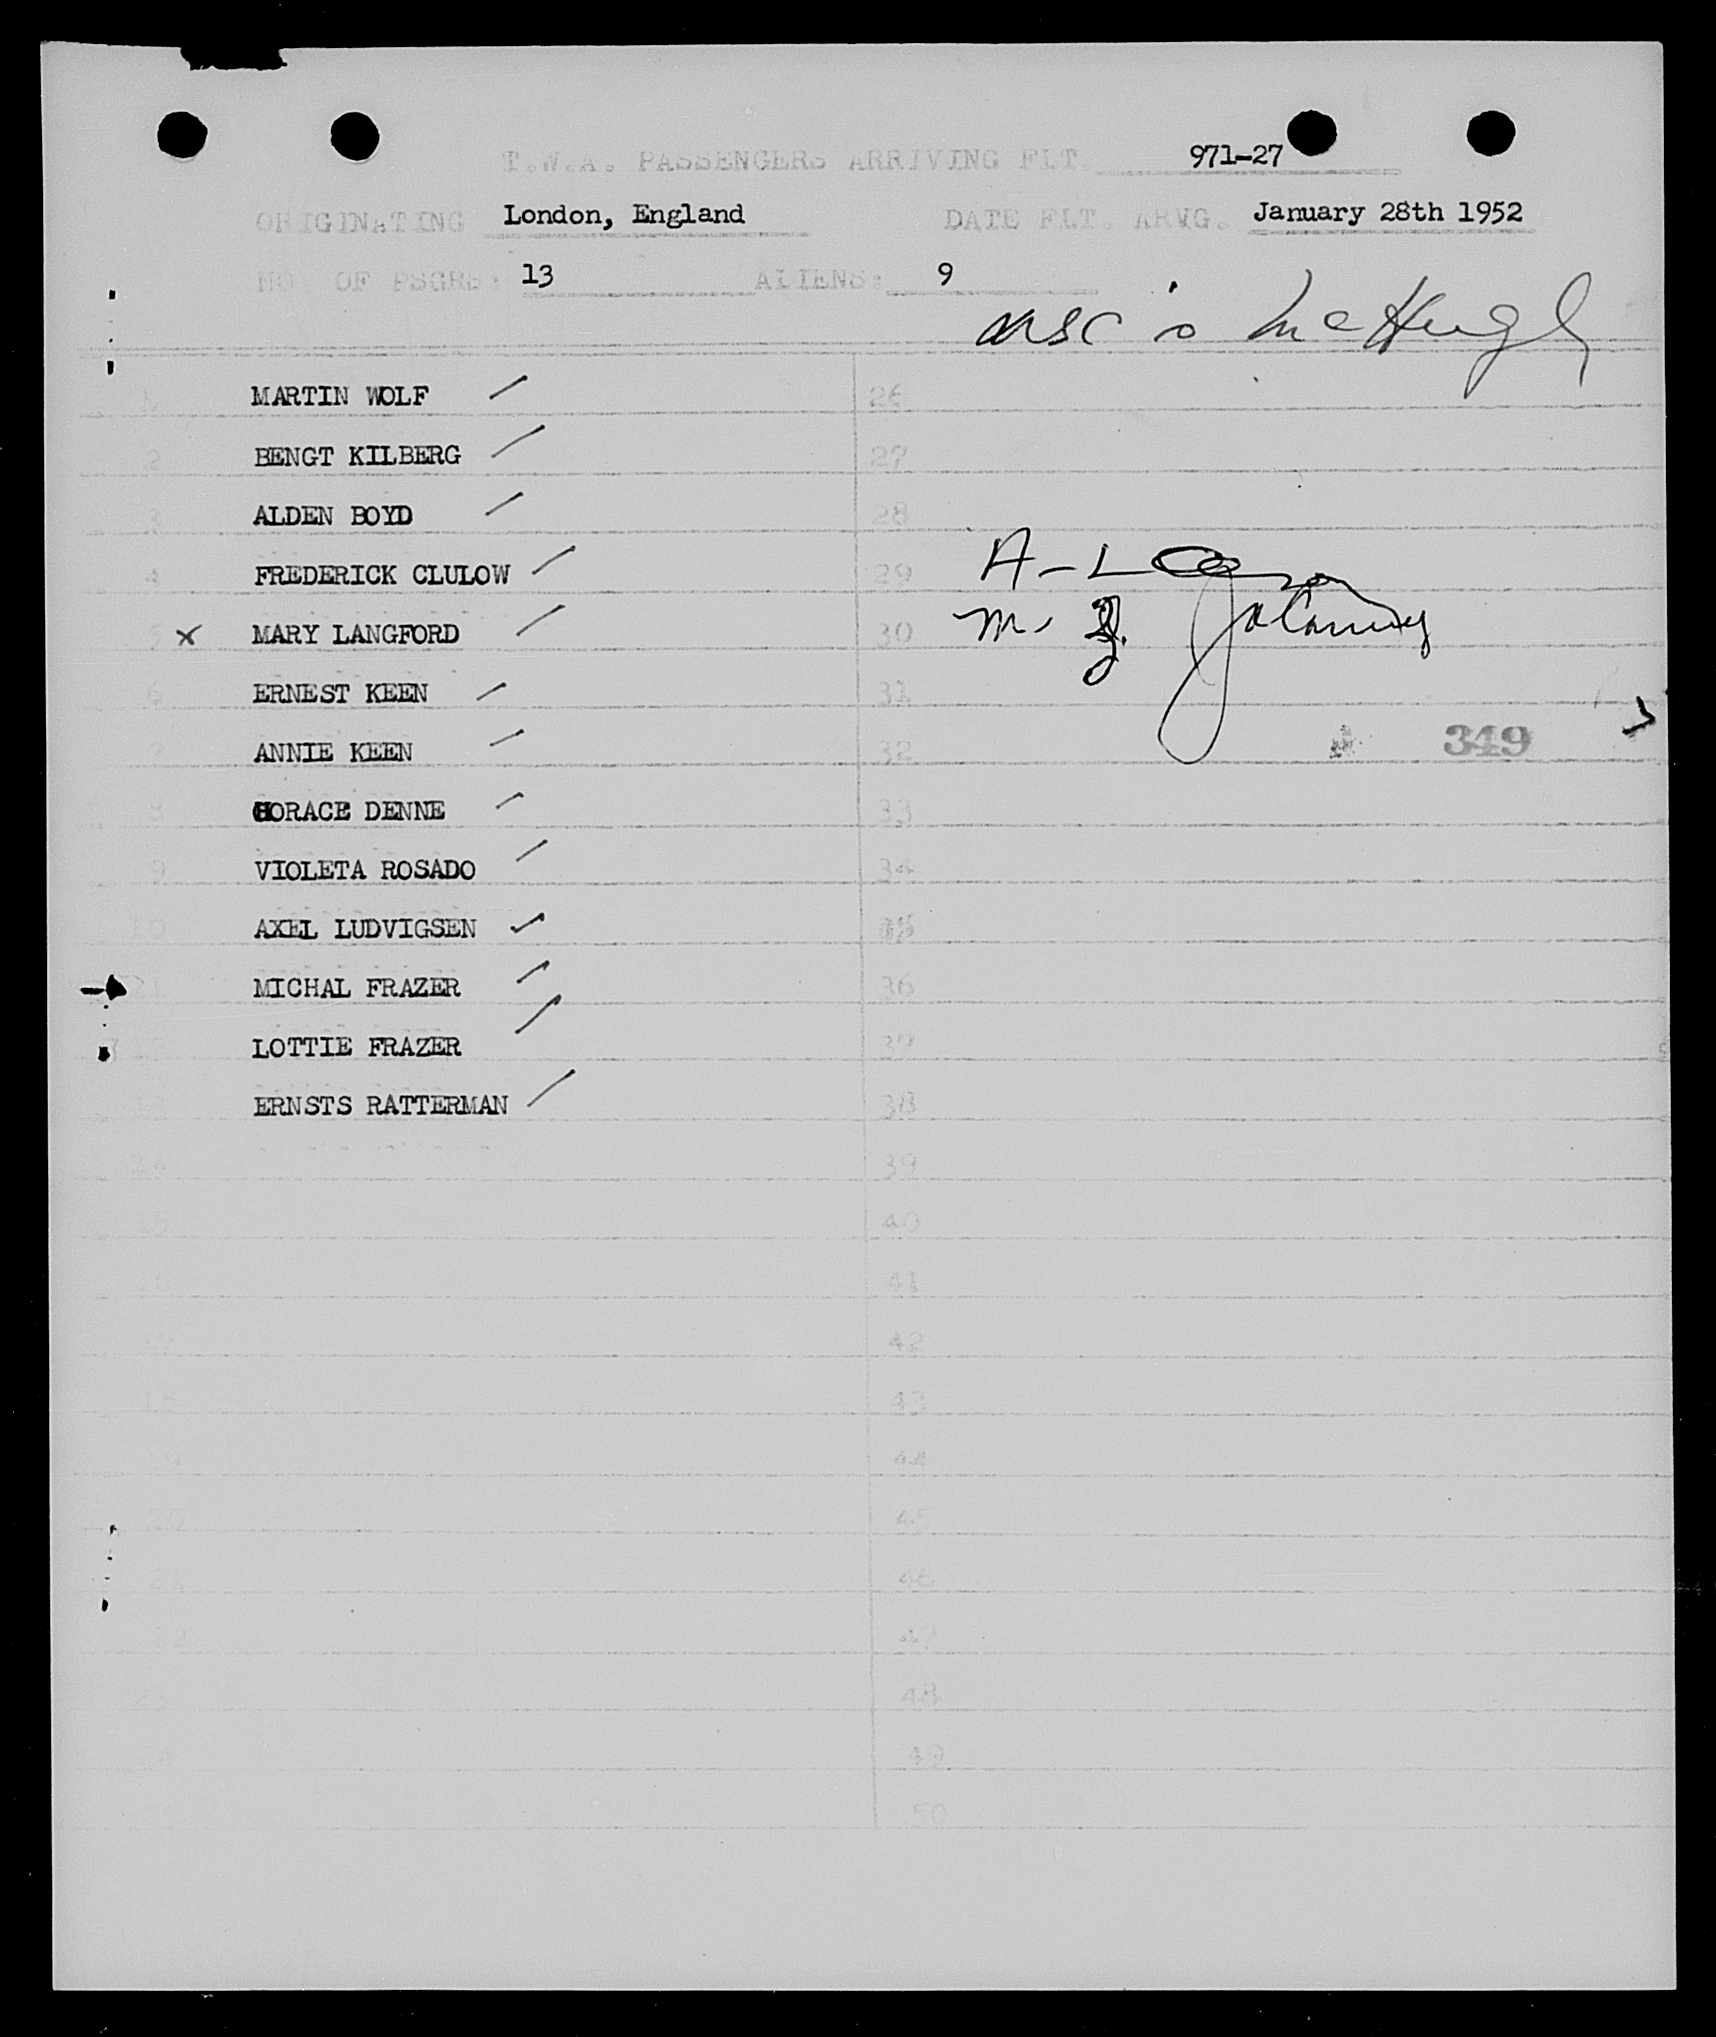 T.W.A. PASSENGERS ARRIVING FLT. 971-27
ORIGINATING London, England DATE FLT. ARVG. January 28th 1952
NO. OF PSGRS: 13 ALIENS: 9
McHugh
1 MARTIN WOLF 26
2 BENGT KILBERG 27
3 ALDEN BOYD 28
4 FREDERICK CLULOW 29
5 x MARY LANGFORD 30
6 ERNEST KEEN 31
7 ANNIE KEEN 32 349
8 HORACE DENNE 33
9 VIOLETA ROSADO 34
10 AXEL LUDVIGSEN 35
11 MICHAL FRAZER 36
12 LOTTIE FRAZER 37
13 ERNSTS RATTERMAN 38
14 39
15 40
16 41
42
43
44
20 45
21 46
22 47
23 48
49
50